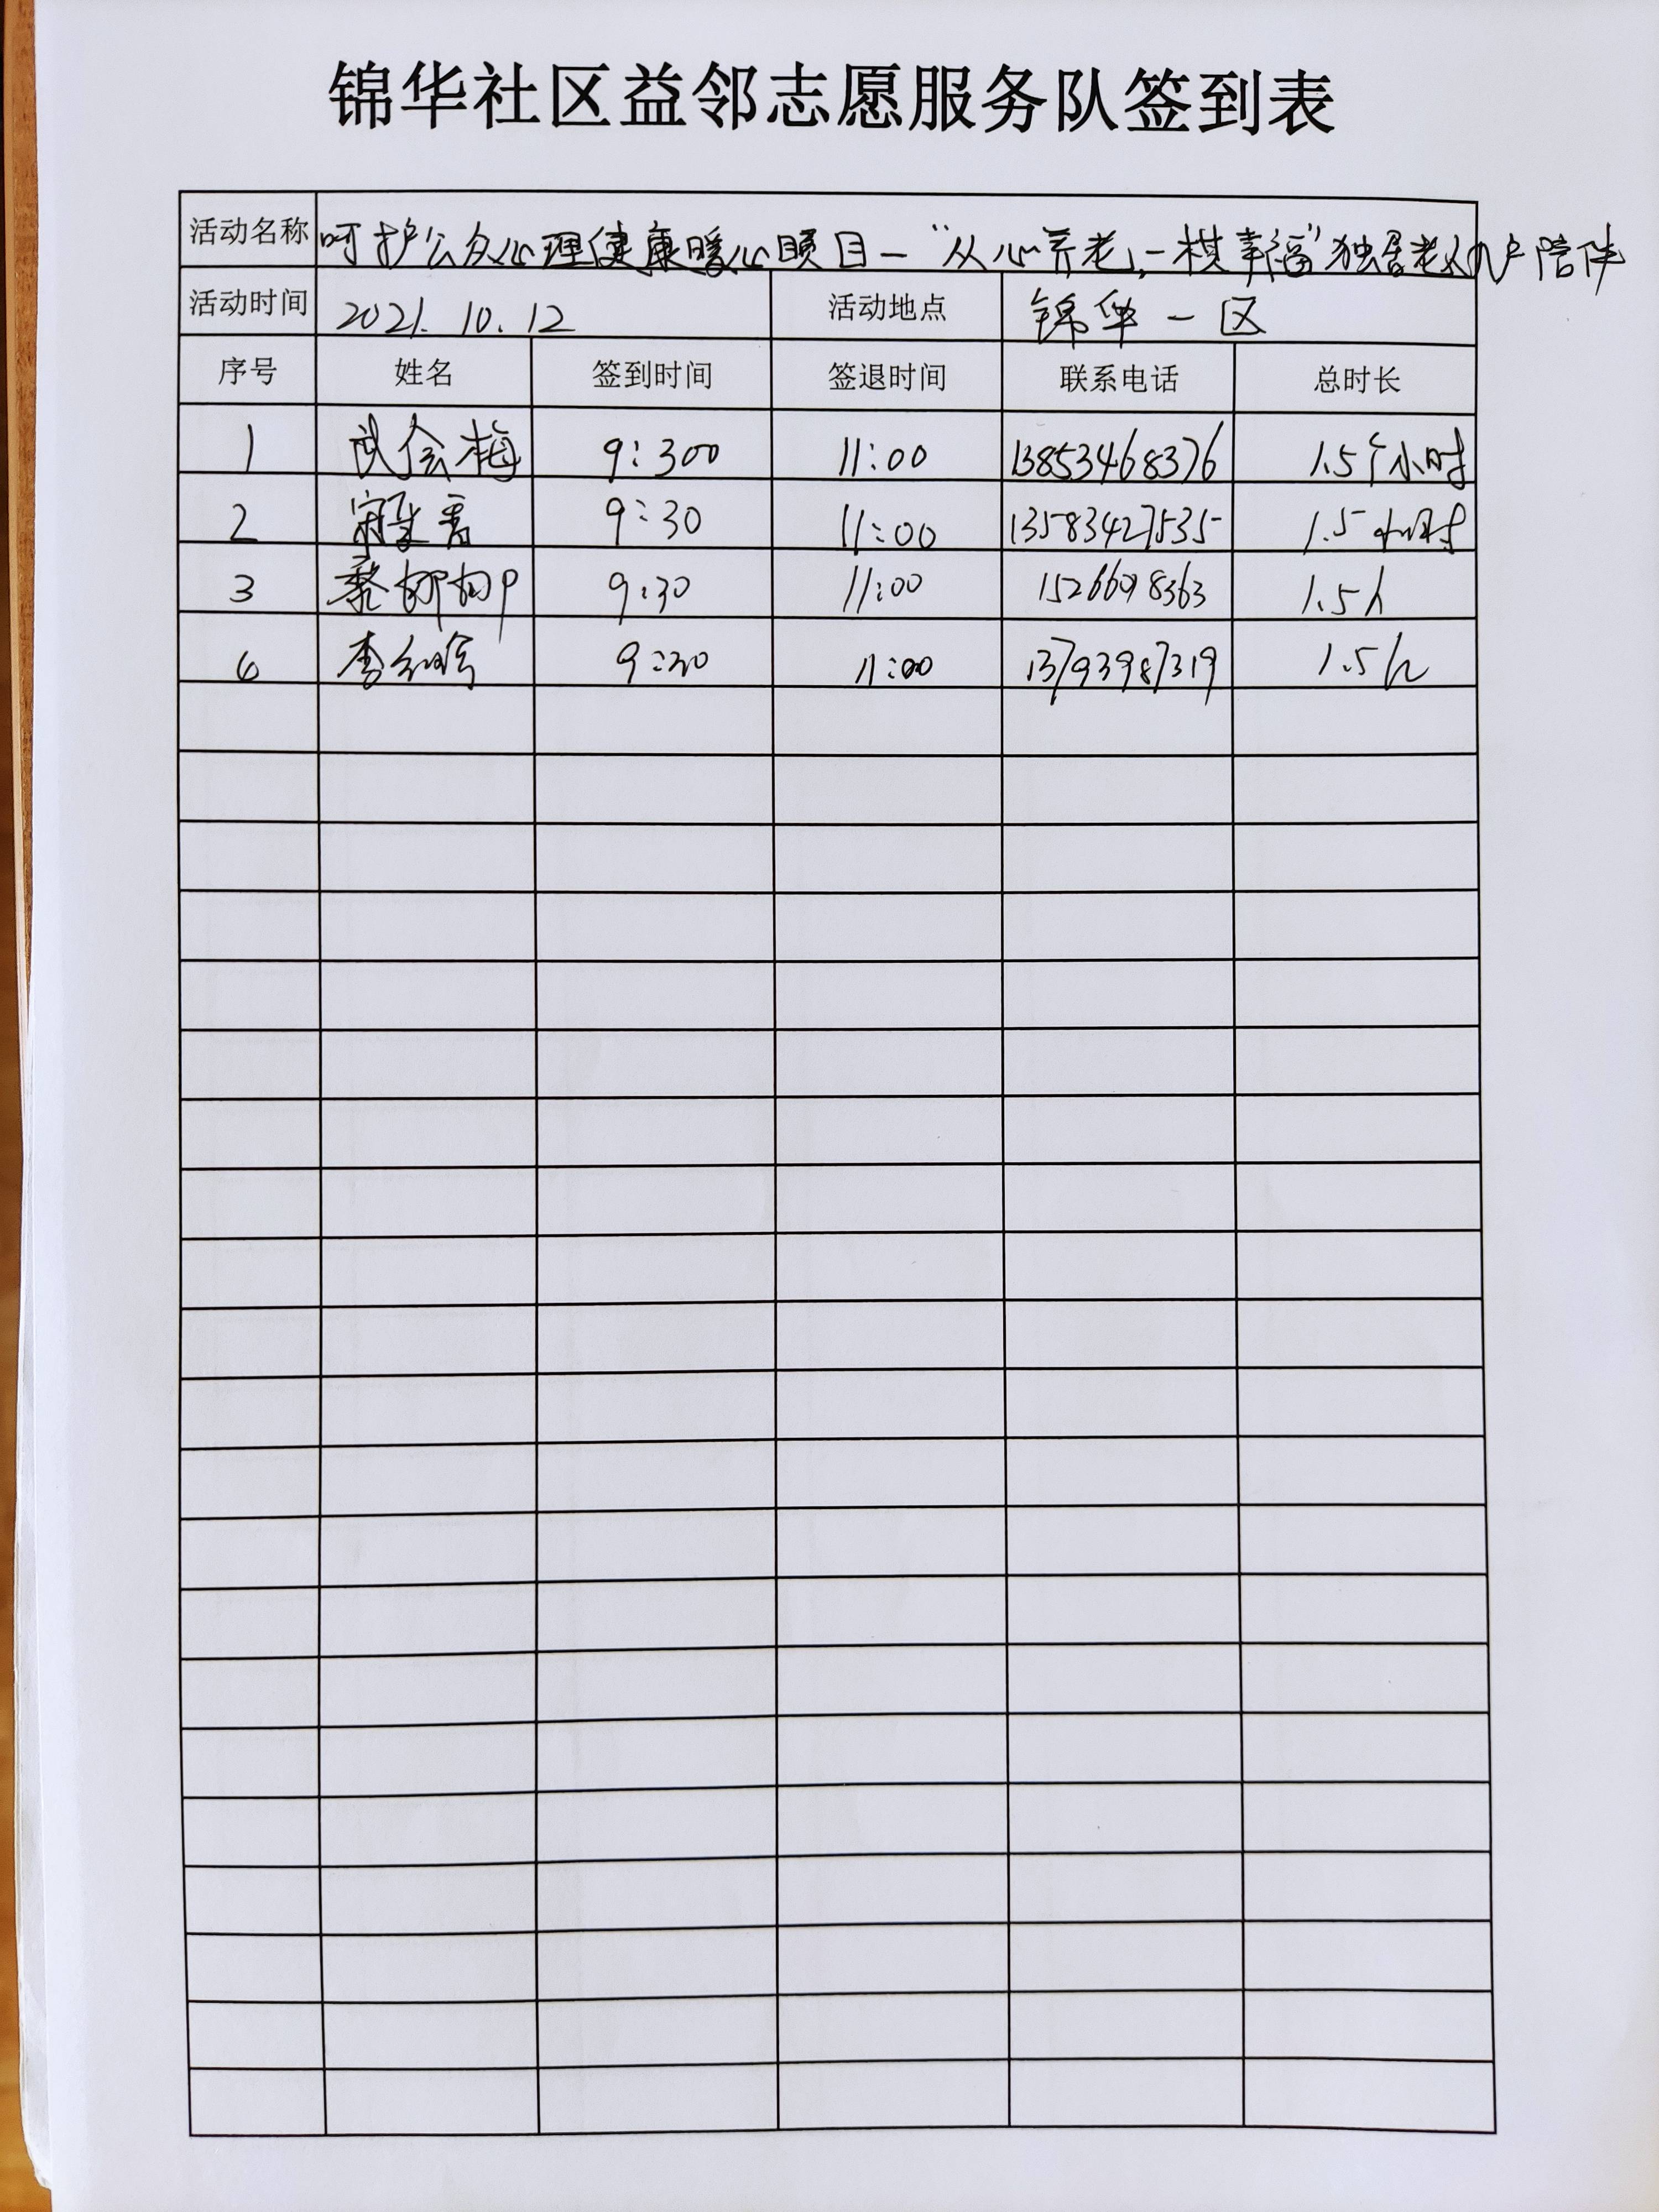 锦华社区益邻志愿服务队签到表
活动名称 呵护公众心理健康暖心项目—“从心养老,一棋幸福”独居老人入户陪伴
活动时间 2021.10.12 活动地点 锦华一区
序号 姓名 签到时间 签退时间 联系电话 总时长
1 武会梅 9:300 11:00 13853468376 1.5个小时
2 9:30 11:00 13583427535 1.5小时
3 9:30 11:00 1.5h
4 9:30 11:00 13793987319 1.5h